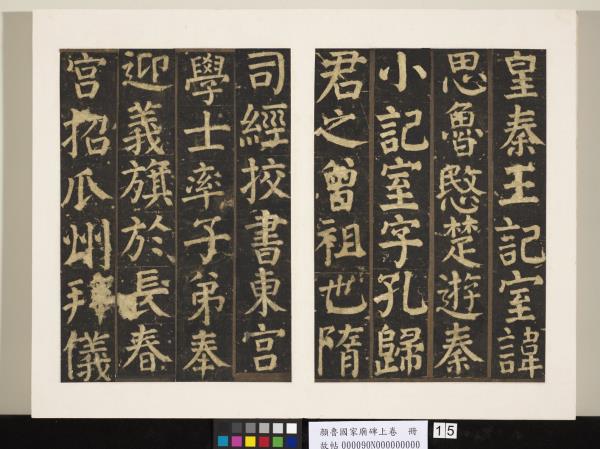 皇秦王記室諱
思魯愍楚遊秦
小記室字孔歸
君之曾祖也隋
司經挍書東宮
學士率子弟奉
迎義旗於長春
宮招瓜州拜儀
顏魯國家廟碑上卷 冊
故帖 000090N000000000
15